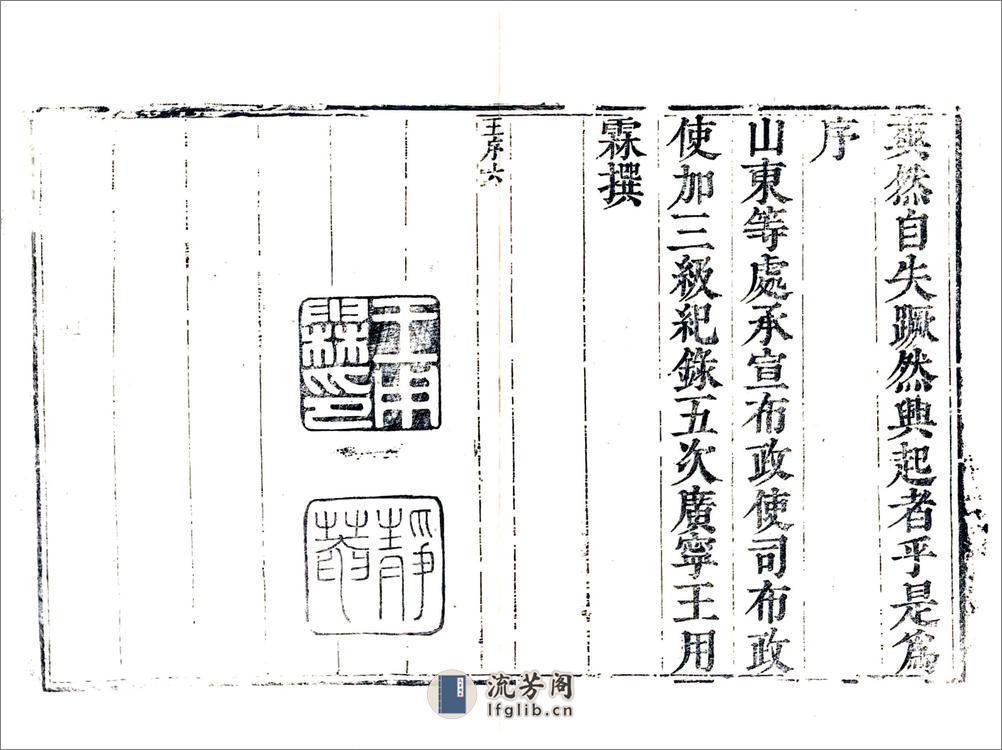 爽然自失蹶然興起者乎是爲
序
山東等處承宣布政使司布政
使加三級紀錄五次廣寧王用
霖撰
王序六
王用霖印
流芳阁
lfglib.cn